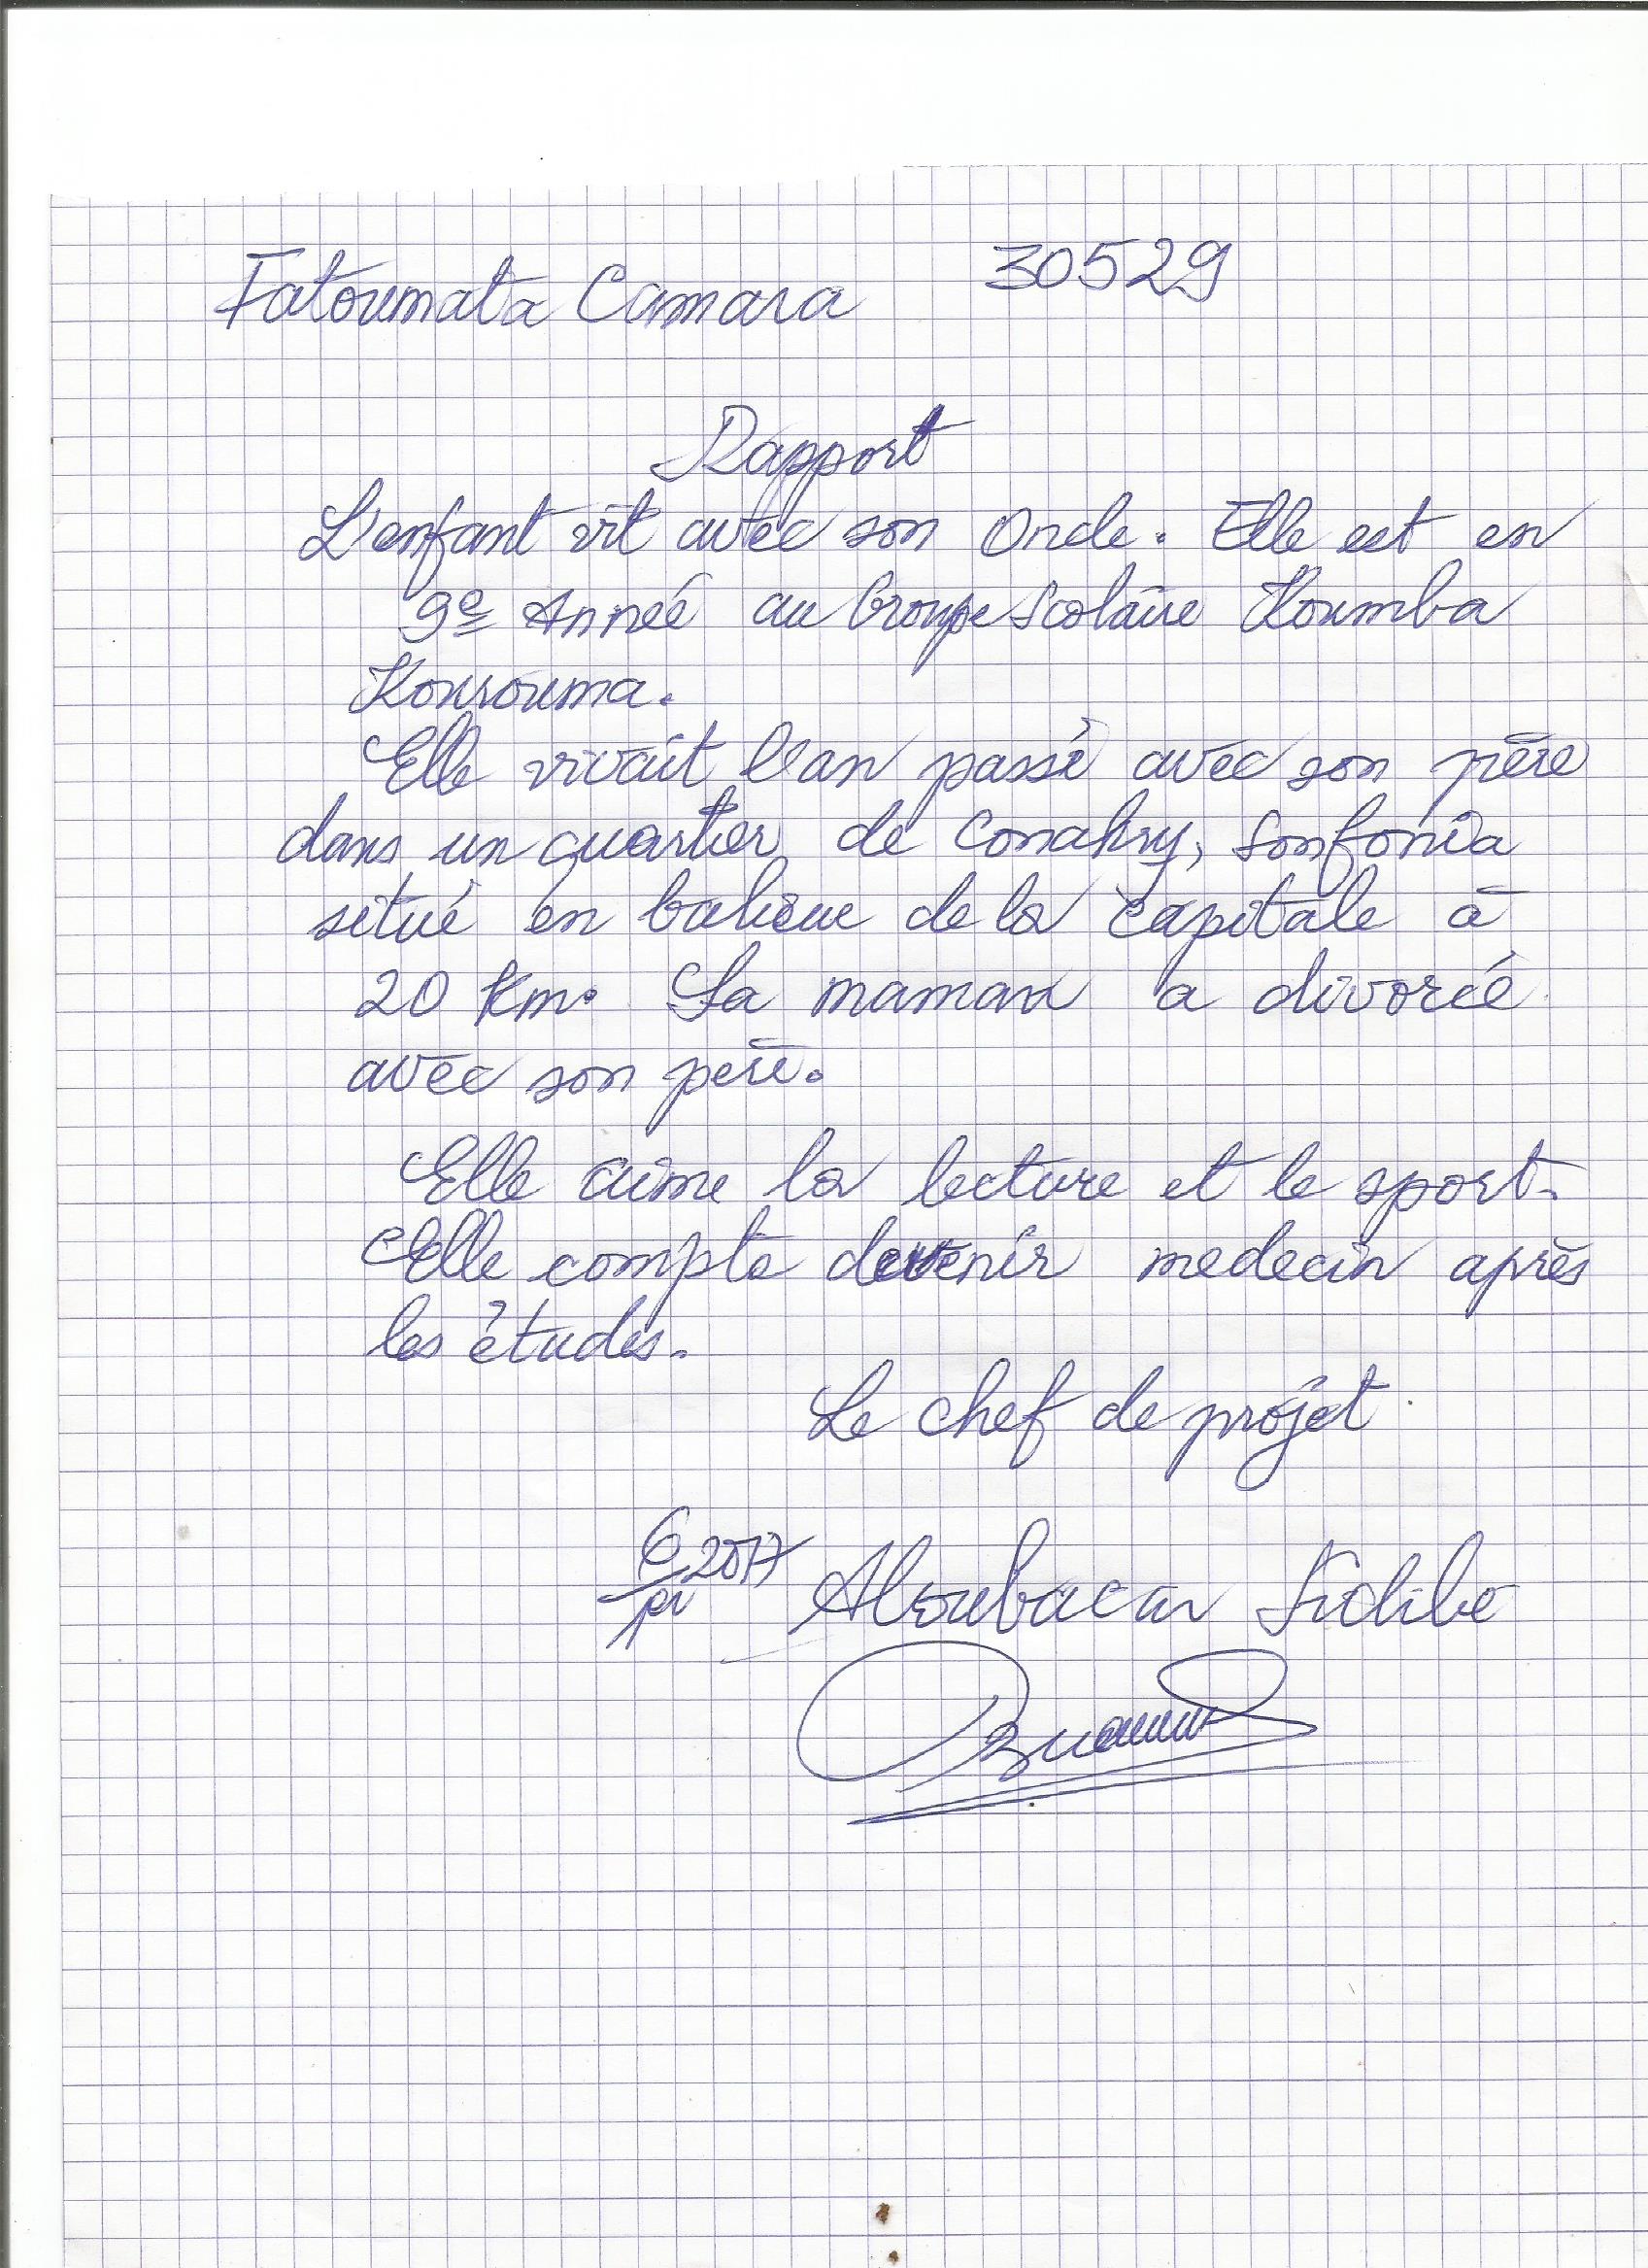 Fatoumata Camara 30529
Rapport
L'enfant vit avec son Oncle. Elle est en
9e Année au Groupe Scolaire Koumba
Kourouma.
Elle vivait l'an passé avec son père
dans un quartier de Conakry, Sonfonia
situé en balieue de la capitale à
20 Km. Sa maman a divorcé
avec son père.
Elle aime la lecture et le sport.
Elle compte devenir medecin après
les études.
Le chef de projet
2017 Aboubacar Sidibe